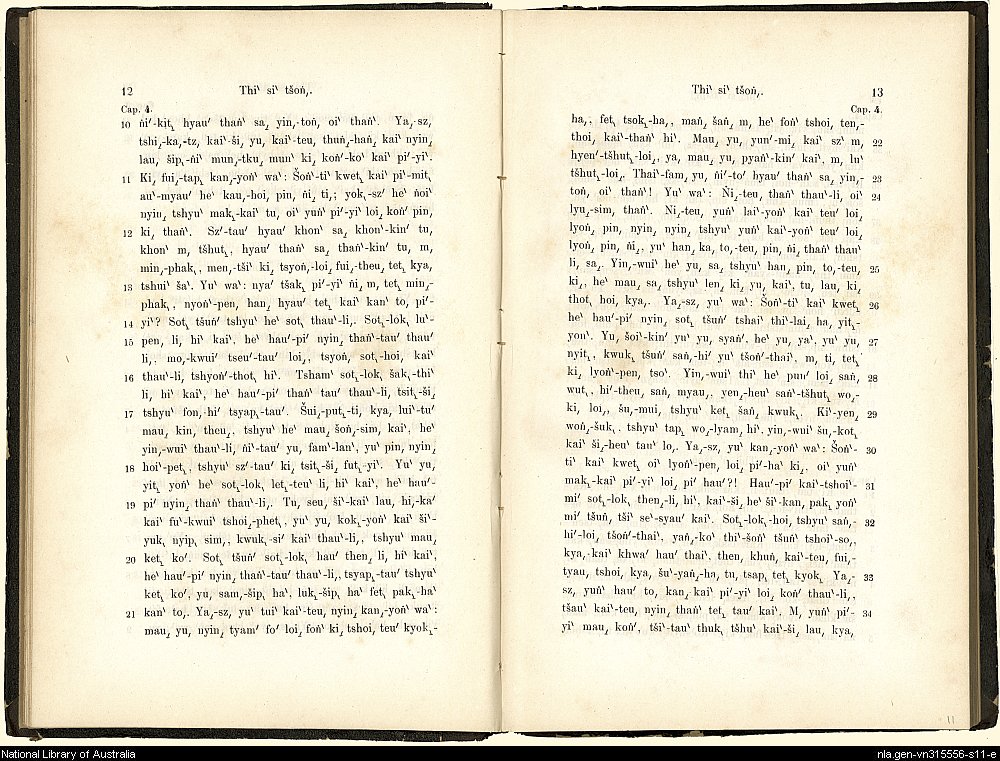 12
Thi‵ si‵ tšoṅ͵.
Cap. 4.
10 ṅi′-kit͵ hyau′ thaṅ‵ sa͵ yin͵-toṅ, oi‵ thaṅ‵. Ya͵-sz,
tshi͵-ka͵-tz, kai‵-ši, yu, kai‵-teu, thuṅ͵-haṅ͵ kai‵ nyin͵
lau, šip͵-ṅi‵ mun͵-tku͵ mun‵ ki͵ koṅ′-ko‵ kai‵ pi′-yi‵.
11 Ki͵ fui͵-tap͵ kan͵-yoṅ‵ wa‵: Šoṅ‵-ti‵ kwet͵ kai‵ pi‵-mit͵
au‵-myau′ he‵ kau͵-hoi, pin, ṅi͵ ti,; yok͵-sz′ he‵ ṅoi‵
nyin, tshyu‵ mak͵-kai‵ tu, oi‵ yuṅ‵ pi′-yi‵ loi͵ koṅ′ pin,
12 ki͵ thaṅ‵. Sz′-tau′ hyau′ khon‵ sa͵ khon‵-kin′ tu,
khon‵ m, tšhut͵, hyau′ thaṅ‵ sa͵ thaṅ‵-kin′ tu, m,
min͵-phak͵, men͵-tši‵ ki͵ tsyoṅ͵-loi͵ fui͵-theu, tet͵ kya,
13 tshui‵ ša‵. Yu‵ wa‵: nya′ tšak͵ pi′-yi‵ ṅi͵ m, tet͵ min͵-
phak͵, nyoṅ‵-pen, han͵ hyau′ tet͵ kai‵ kan‵ to, pi′-
14 yi‵? Sot͵ tšuṅ′ tshyu‵ he‵ sot͵ thau‵-li,. Sot͵-lok͵ lu‵-
15 pen, li, hi‵ kai‵, he‵ hau′-pi′ nyin, thaṅ‵-tau′ thau′
li,, mo͵-kwui′ tseu′-tau′ loi͵, tsyoṅ, sot͵-hoi, kai‵
16 thau‵-li, tshyoṅ′-thot͵ hi‵. Tsham‵ sot͵-lok͵ šak͵-thi‵
li, hi‵ kai‵, he‵ hau′-pi′ thaṅ‵ tau′ thau‵-li, tsit͵-ši͵
17 tshyu‵ fon͵-hi′ tsyap͵-tau′. Šui͵-put͵-ti, kya, lui‵-tu′
mau͵ kin, theu,, tshyu‵ he‵ mau͵ šoṅ͵-sim, kai‵, he‵
yin͵-wui‵ thau‵-li, ṅi‵-tau′ yu, fam‵-lan‵, yu‵ pin, nyin͵
18 hoi‵-pet͵, tshyu‵ sz′-tau′ ki͵ tsit͵-ši͵ fut͵-yi‵. Yu‵ yu,
yit͵ yoṅ‵ he‵ sot͵-lok͵ let͵-teu‵ li, hi‵ kai‵, he‵ hau′-
19 pi′ nyin͵ thaṅ‵ thau‵-li,. Tu, seu, ši‵-kai‵ lau, hi͵-ka′
kai‵ fu‵-kwui‵ tshoi͵-phet͵, yu‵ yu, kok͵-yoṅ‵ kai‵ ši‵-
yuk͵ nyip͵ sim,, kwuk͵-si′ kai‵ thau‵-li,, tshyu‵ mau͵
20 ket͵ ko′. Sot͵ tšuṅ′ sot͵-lok͵ hau′ then͵ li, hi‵ kai‵,
he‵ hau′-pi′ nyin͵ thaṅ‵-tau′ thau‵-li,, tsyap͵-tau′ tshyu‵
ket͵ ko′, yu, sam,-šip͵ ha‵, luk͵-šip͵ ha‵ fet͵ pak͵-ha‵
21 kan‵ to,. Ya͵-sz, yu‵ tui‵ kai‵-teu, nyin͵ kan͵-yoṅ‵ wa‵:
mau͵ yu, nyin͵ tyam′ fo′ loi͵ foṅ‵ ki͵ tshoi, teu′ kyok͵-
Thi‵ si‵ tšoṅ͵.
13
Cap. 4.
ha͵, fet͵ tsok͵-ha͵, maṅ͵ šaṅ͵ m, he‵ foṅ‵ tshoi, ten͵-
thoi, kai‵-thaṅ‵ hi‵. Mau͵ yu, yun′-mi͵ kai‵ sz‵ m, 22
hyen′-tšhut͵-loi͵, ya, mau͵ yu, pyaṅ‵-kin′ kai‵, m, lu‵
tšhut͵-loi͵. Thai‵-fam͵ yu, ṅi′-to′ hyau′ thaṅ‵ sa͵ yin͵- 23
toṅ, oi‵ thaṅ‵! Yu‵ wa‵: Ṅi͵-teu, thaṅ‵ thau‵-li, oi‵ 24
lyu͵-sim, thaṅ‵. Ni͵-teu, yuṅ‵ lai‵-yoṅ‵ kai‵ teu′ loi͵
lyoṅ͵ pin, nyin͵ nyin͵ tshyu‵ yuṅ‵ kai‵-yoṅ‵ teu′ loi͵
lyoṅ͵ pin, ṅi͵, yu‵ han͵ ka, to͵-teu, pin, ṅi͵ thaṅ‵ thau‵
li, sa͵. Yin͵-wui‵ he‵ yu, sa͵ tshyu‵ han͵ pin, to͵-teu, 25
ki͵, he‵ mau͵ sa͵ tshyu‵ len͵ ki͵ yu, kai‵, tu, lau, ki͵
thot͵ hoi, kya,. Ya͵-sz, yu‵ wa‵: Šoṅ‵-ti‵ kai‵ kwet͵ 26
he‵ hau′-pi′ nyin͵ sot͵ tšuṅ′ tshai‵ thi‵-lai͵ ha, yit͵-
yon‵. Yu, šoi‵-kin′ yu‵ yu, syaṅ′, he‵ yu, ya‵, yu‵ yu, 27
nyit͵, kwuk͵ tšuṅ′ saṅ,-hi′ yu‵ tšoṅ′-thai‵, m, ti, tet͵
ki͵ lyoṅ‵-pen, tso‵. Yin,-wui‵ thi‵ he‵ pun′ loi͵ saṅ, 28
wut͵, hi′-theu, saṅ, myau,, yen͵-heu‵ saṅ‵-tšhut͵ wo͵-
ki, loi͵, šu͵-mui, tshyu‵ ket͵ šaṅ͵ kwuk͵. Ki‵-yen͵ 29
woṅ͵-šuk͵, tshyu‵ tap͵ wo͵-lyam͵ hi‵, yin,-wui‵ šu͵-kot͵
kai‵ ši͵-heu‵ tau‵ lo,. Ya͵-sz, yu‵ kan͵-yoṅ‵ wa‵: Šoṅ‵- 30
ti‵ kai‵ kwet͵ oi‵ lyoṅ‵-pen, loi͵ pi′-ha‵ ki͵, oi‵ yuṅ‵
mak͵-kai‵ pi′-yi‵ loi͵ pi′ hau′?! Hau′-pi′ kai‵-tshoi‵- 31
mi′ sot͵-lok͵ then͵-li, hi‵, kai‵-ši͵ he‵ ši‵-kan, pak͵ yoṅ‵
mi′ tšuṅ, tši‵ se‵-syau′ kai‵. Sot͵-lok͵-hoi, tshyu‵ saṅ,- 32
hi′-loi͵ tšoṅ′-thai‵, yaṅ͵-ko‵ thi‵-šoṅ‵ tšuṅ‵ tshoi‵-so,,
kya͵-kai‵ khwa′ hau′ thai‵, then, khuṅ, kai‵-teu, fui,-
tyau, tshoi, kya, šu‵-yaṅ͵-ha, tu, tsap͵ tet͵ kyok͵ Ya͵- 33
sz, yuṅ‵ hau′ to, kan͵ kai‵ pi′-yi‵ loi͵ koṅ′ thau‵-li,,
tšau‵ kai‵-teu, nyin͵ thaṅ‵ tet͵ tau′ kai‵. M, yuṅ‵ pi′- 34
yi‵ mau͵ koṅ′, tši‵-tau‵ thuk͵ tšhu‵ kai‵-ši͵ lau, kya,
11
National Library of Australia
nla.gen-vn315556-s11-e